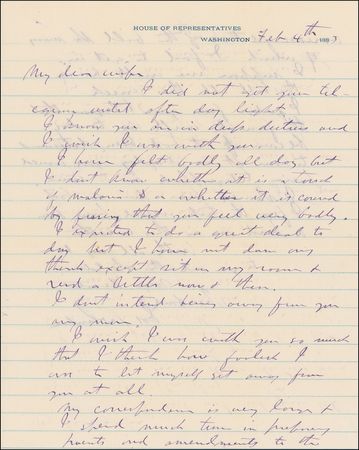 HOUSE OF REPRESENTATIVES
WASHINGTON Feb 4th 1883
My dear wife
I did not get your tel-
egram until after day light
I know you are in deep distress and
I wish I was with you.
I have felt badly all day but
I dont know whether it is a touch
of malaria or whether it is caused
by fearing that you feel very badly.
I expected to do a great deal to
day but I have not done any
thing except sit in my room &
read a little now & then.
I dont intend being away from you
any more.
I wish I was with you so much
that I think how foolish I
am to let myself get away from
you at all.
My correspondence is very large &
I spend much time in preparing
and amendments to the